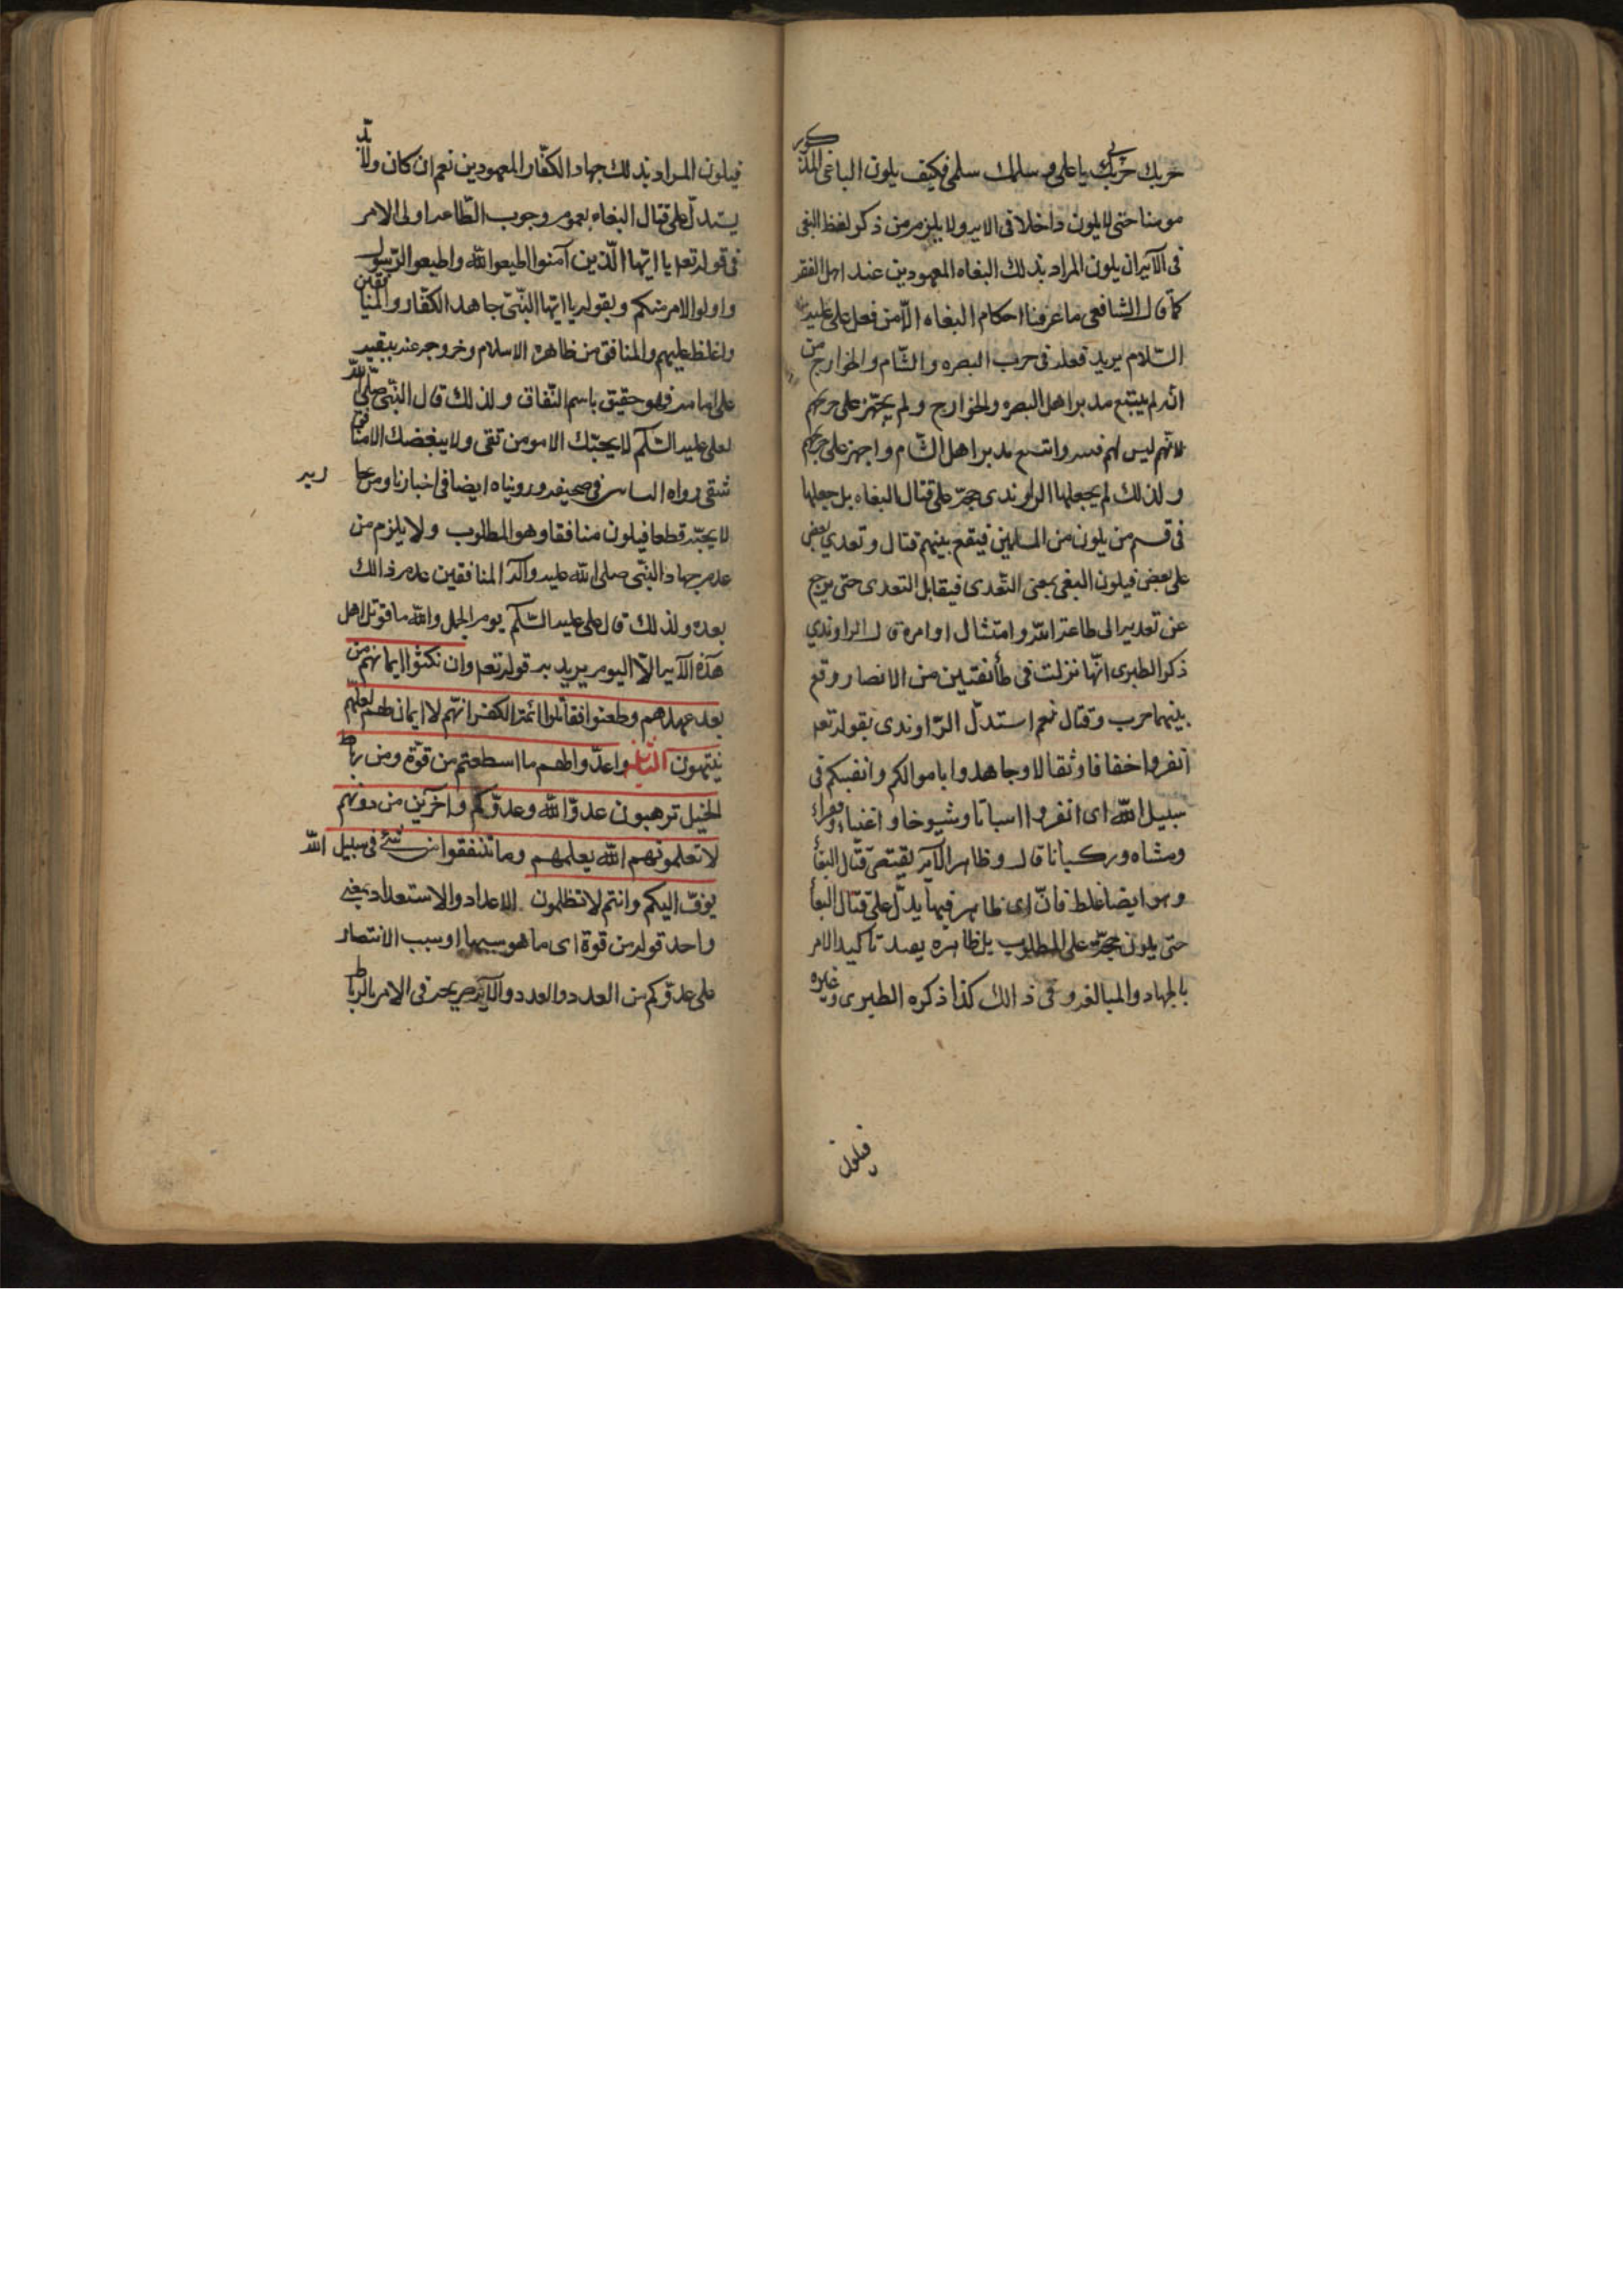 حربك حربي يا علي و سلمك سلمي فكيف يكون الباغى المذكور
مومنا حتى يكون داخلا فى الايه ولا يلزم من ذكر لفظ البغى
فى الآيه ان يكون المراد بذلك البغاه المعهودين عند اهل الفقه
كما قال الشافعى ما عرفنا احكام البغاه الّا من فعل على عليه
السّلام يريد فعله فى حرب البصره والشّام والخوارج من
انّه لم يتبع مدبر اهل البصره والخوارج ولم يجهز على جريحهم
لانّهم ليس لهم فئه واتبع مدبر اهل الشّام واجهز على جريحهم
ولذلك لم يجعلها الراوندى حجّة على قتال البغاه بل جعلها
فى قسم من يكون من المسلمين فيقع بينهم قتال وتعدي بعض
على بعض فيكون البغى بمعنى التّعدى فيقاتل التعدى حتى يرجع
عن تعديه الى طاعة اللّه وامتثال اوامره قال الراوندي
ذكر الطبرى انّها نزلت فى طائفتين من الانصار وقع
بينهما حرب وقتال نعم استدلّ الرّاوندى بقوله تعه
انفروا خفافا وثقالا وجاهدوا باموالكم وانفسكم فى
سبيل اللّه اى انفروا شبانا وشيوخا واغنياء وفقراء
ومشاه وركبانا قال وظاهر الآيه يقتضى قتال البغاة
وهو ايضا غلط فانّ اى ظاهر فيها يدلّ على قتال البغاة
حتى يكون حجّة على المطلوب بل ظاهره يفيد تاكيد الامر
بالجهاد والمبالغه فى ذالك كذا ذكره الطبرى وغيره
فيكون
فيكون المراد بذلك جهاد الكفّار المعهودين نعم ان كان ولابدّ
يستدلّ على قتال البغاه بعموم وجوب الطّاعه اولى الامر
فى قوله تعه يا ايّها الّذين آمنوا اطيعوا اللّه واطيعوا الرّسول
واولوا الامر منكم وبقوله يا ايّها النبّى جاهد الكفّار والمنافقين
واغلظ عليهم والمنافق من ظاهره الاسلام وخروجه عنه ببغيه
على امامه فهو حقيق باسم النّفاق ولذلك قال النبّى صلّى اللّه
لعلى عليه السّلم لا يحبّك الا مومن تقى ولا يبغضك الا منافق
شقى رواه النسائى فى صحيحه ورويناه ايضا فى اخبارنا ومن حاربه
لا يحبّه قطعا فيكون منافقا وهو المطلوب ولا يلزم من
عدم جهاد النبّى صلى اللّه عليه وآله المنافقين عدم ذالك
بعده ولذلك قال على عليه السّلم يوم الجمل واللّه ما قوتل اهل
هذه الآيه الّا اليوم يريد به قوله تعه وان نكثوا ايمانهم من
بعد عهدهم وطعنوا فقاتلوا ائمّة الكفر انّهم لا ايمان لهم لعلّهم
ينتهون الثّانيه واعدّوا لهم ما اسطعتم من قوّة ومن رباط
الخيل ترهبون عدوّ اللّه وعدوّكم وآخرين من دونهم
لا تعلمونهم اللّه يعلمهم وما تنفقوا من شئ فى سبيل اللّه
يوفّ اليكم وانتم لا تظلمون الاعداد والاستعداد بمعنى
واحد قوله من قوة اى ما هو سببها او سبب الانتصار
على عدوّكم من العدد والعدد والآيه صريحه فى الامر بالرباط